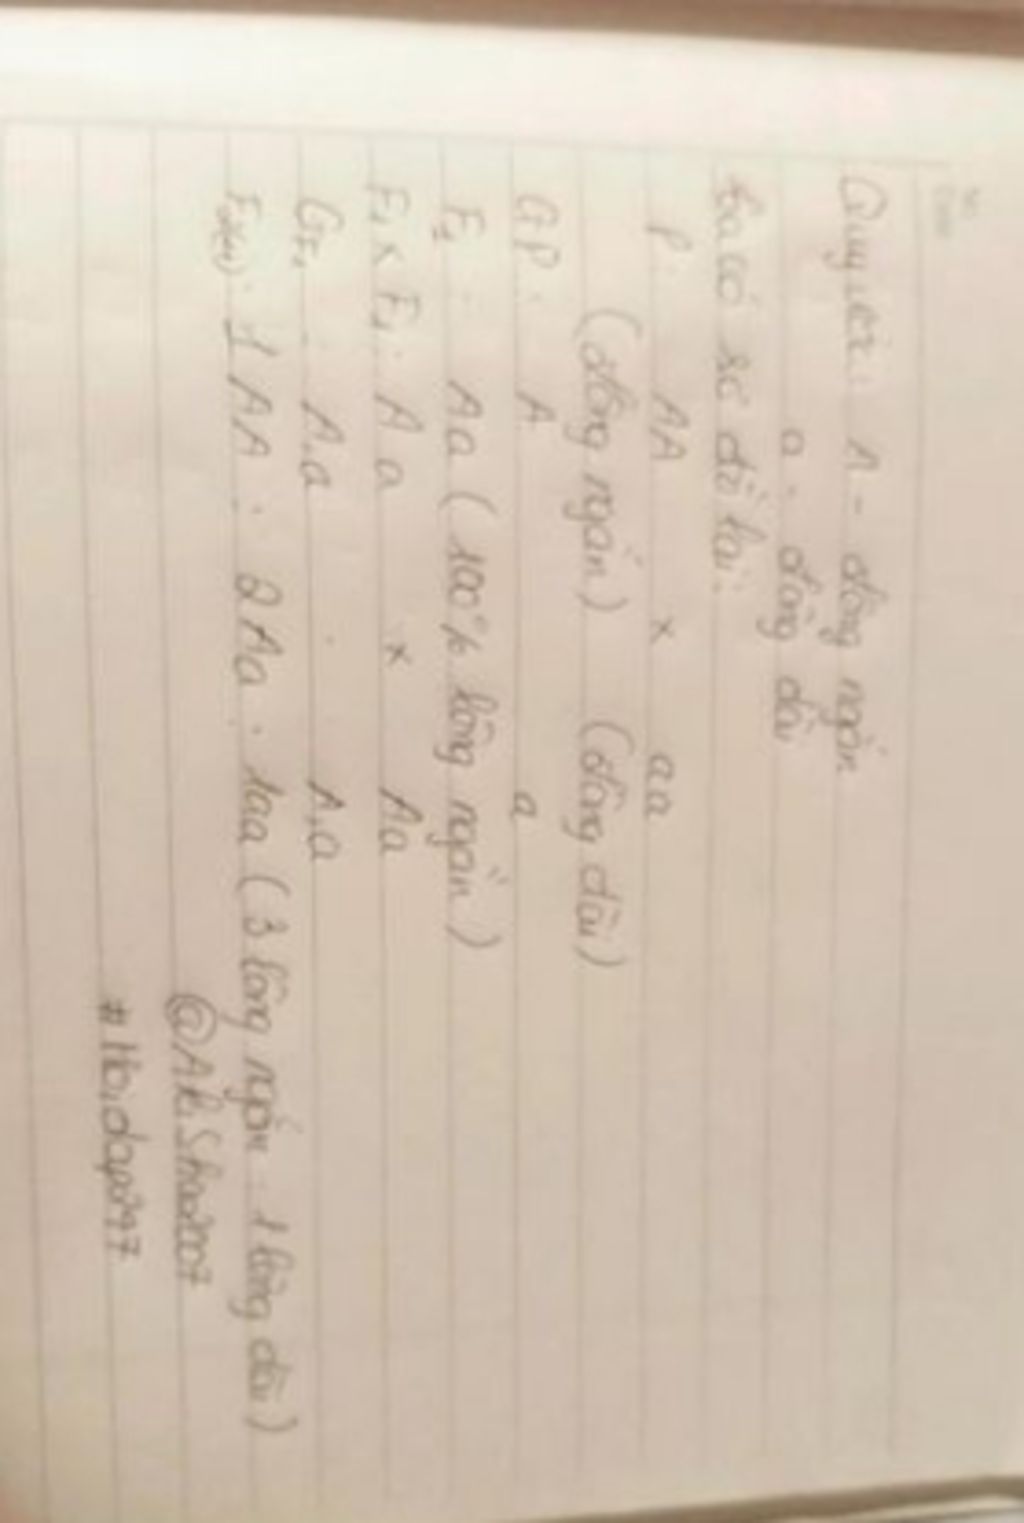 Quy ước: A - lông ngắn
a - lông dài
ta có sơ đồ lai:
P. AA x aa
(lông ngắn) (lông dài)
GP: A a
F1: Aa (100% lông ngắn)
F1 x F1: Aa x Aa
GF1: A,a : A,a
1 AA : 2 Aa : 1aa (3 lông ngắn : 1 lông dài)
@AkiShao2007
#Hoidap247